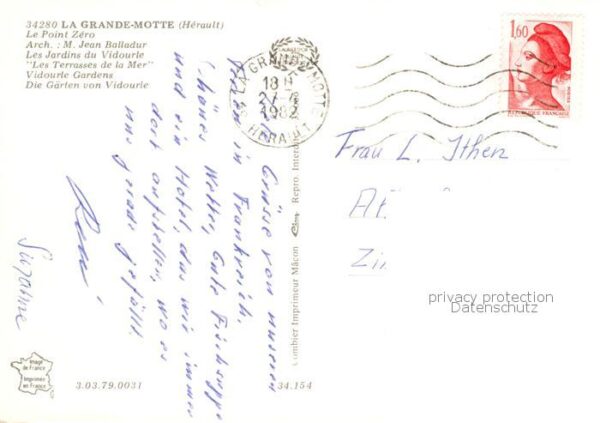 34280 LA GRANDE-MOTTE (Hérault)
Le Point Zéro
Arch. : M. Jean Balladur
Les Jardins du Vidourle
"Les Terrasses de la Mer"
Vidourle Gardens
Die Gärten von Vidourle
LA GRANDE MOTTE
18 H
27-
1982
HERAULT
1,60
REPUBLIQUE FRANCAISE
Grüsse von unseren
in Frankreich.
Schönes Wetter, Gute Fischsuppe
und ein Hotel, das wir immer
dort aufstellen, wo es
uns gerade gefällt.
Suzanne
Frau L. Ithen
Combier Imprimeur Mâcon
Repro. Interdite
privacy protection
Datenschutz
Image
de France
Imprimée
en France
3.03.79.0031
34.154